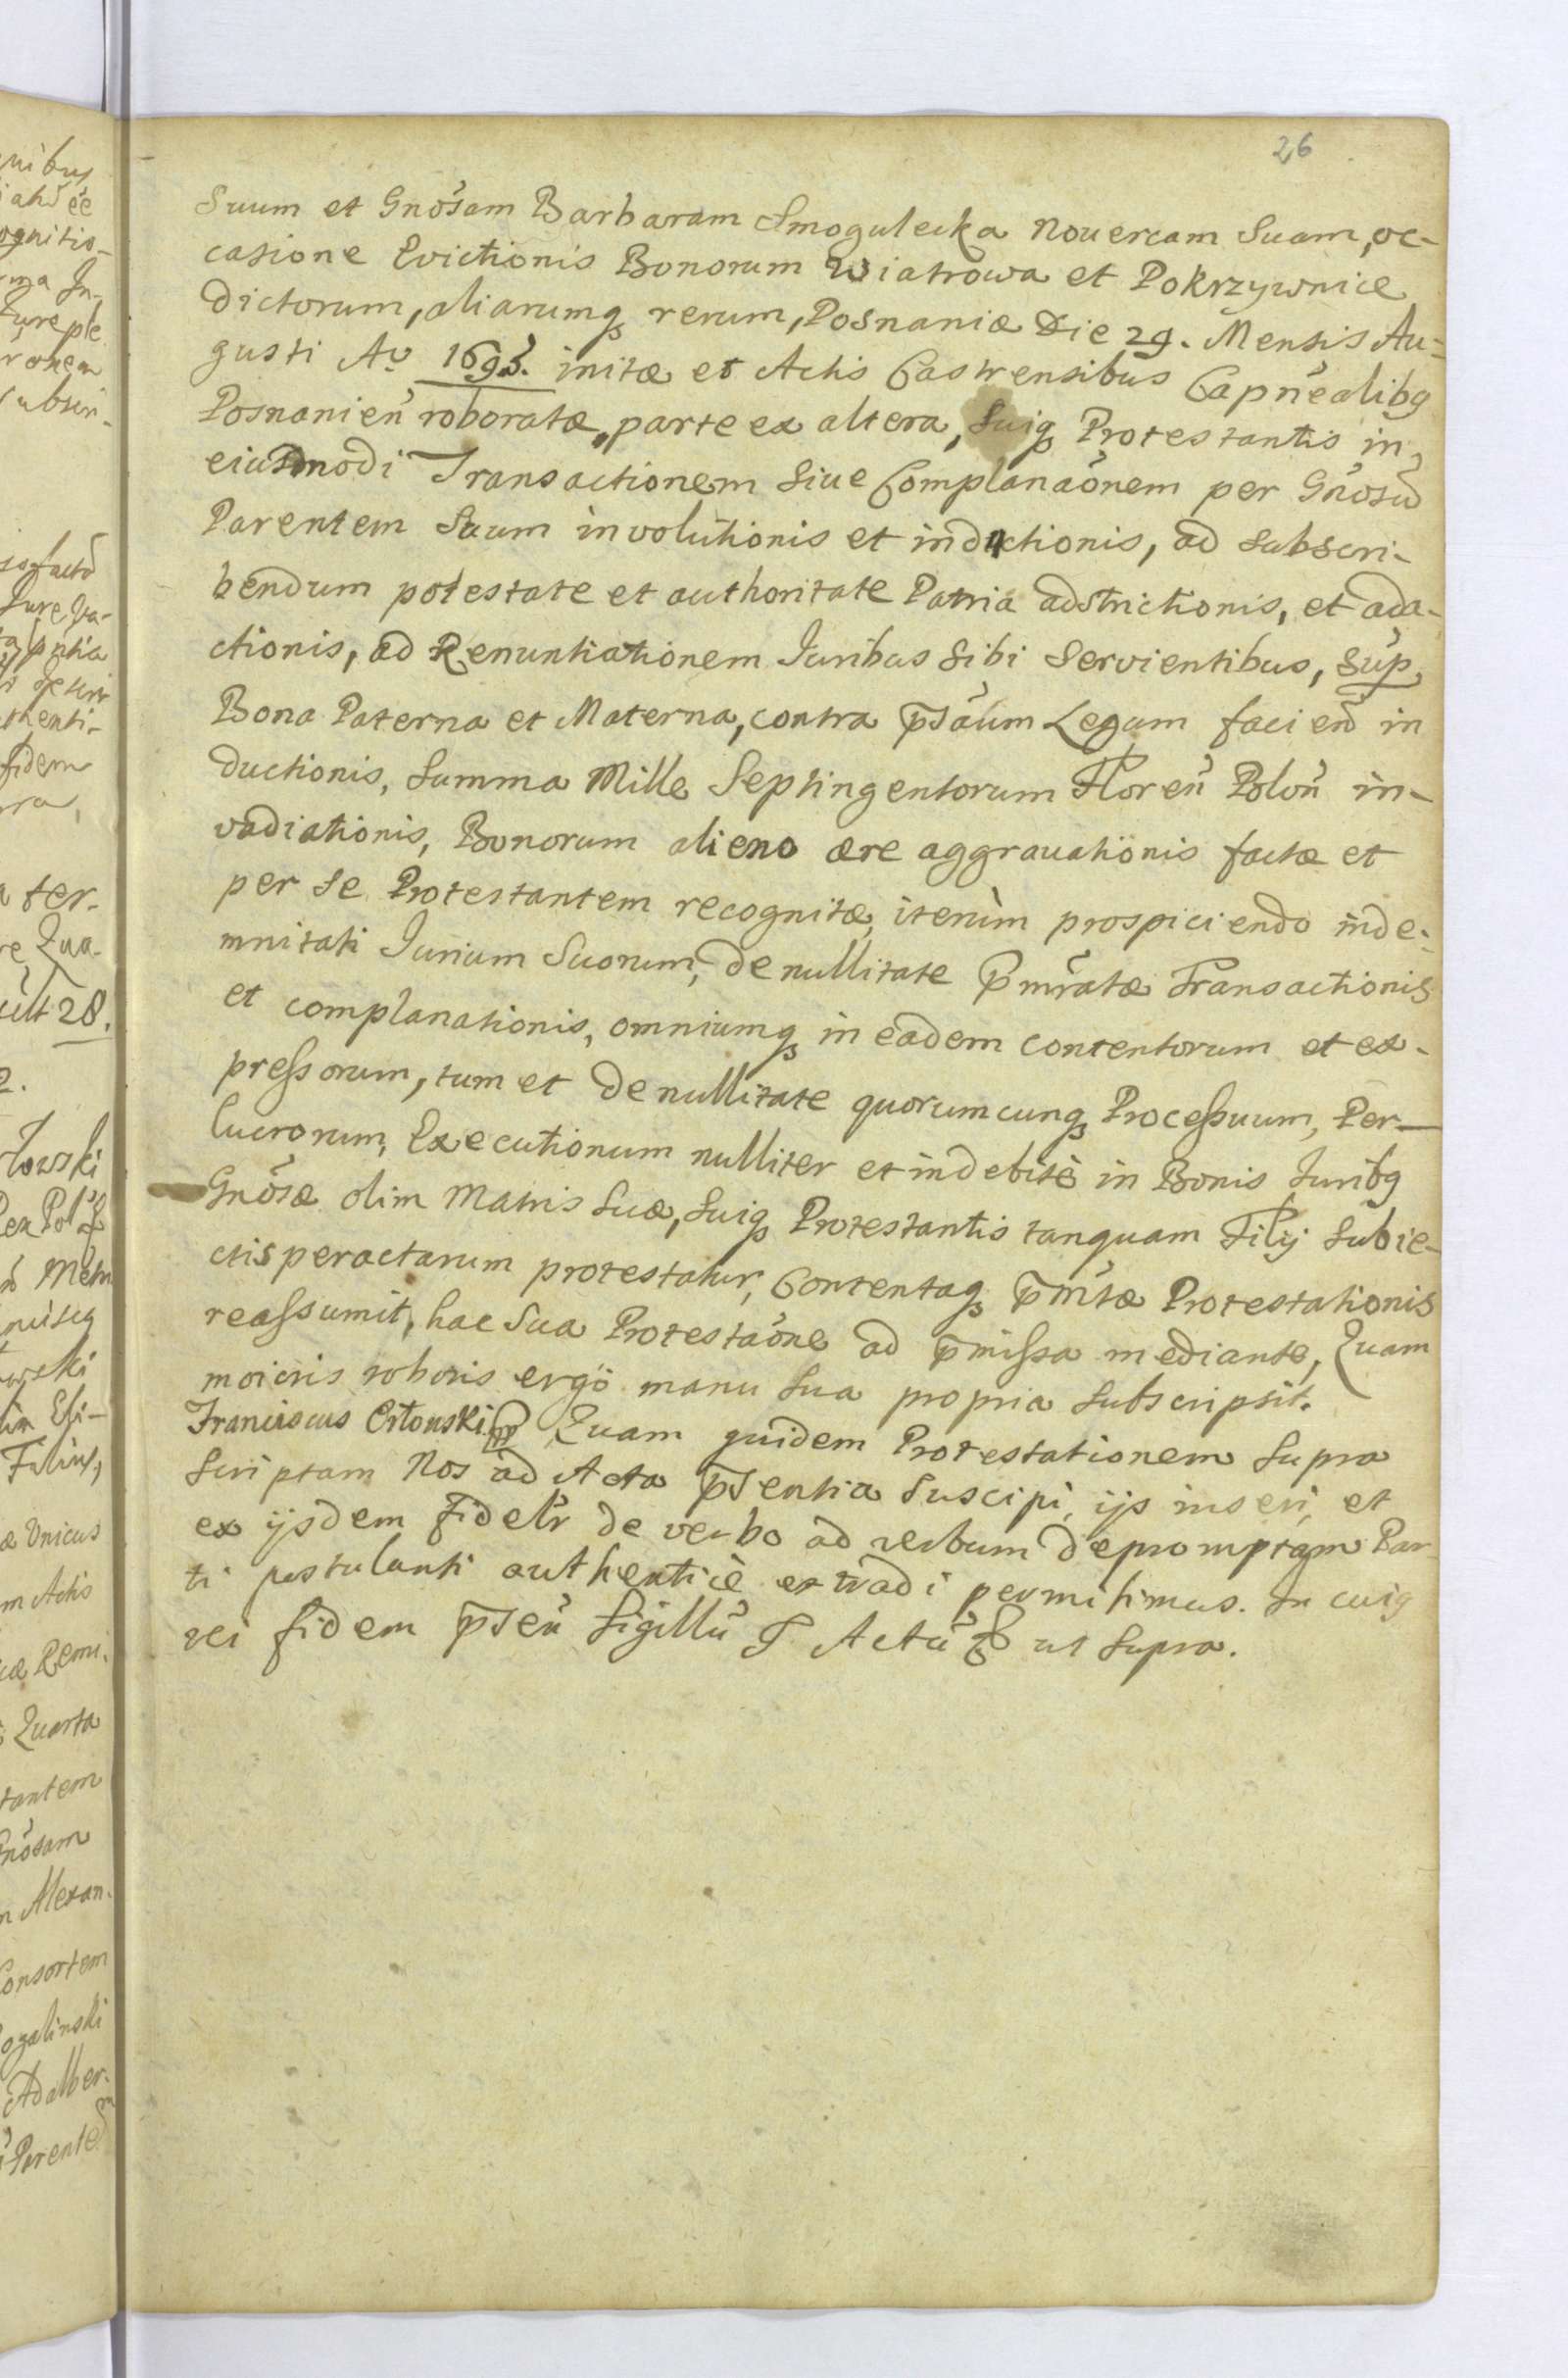 26
Suum et Gnõsam Barbaram Smogulecka Nouercam Suam, oc-
casione Evictionis Bonorum Wiatrowa et Pokrzywnice
dictorum, aliarumq3 rerum, Posnaniæ Die 29. Mensis Au-
gusti Aº 1693. initæ et Actis Castrensibus Capñealibq
Posnanień roboratæ, parte ex altera, Suiq3 Protestantis in
eiusmodi Transactionem Siue Complanãonem per Gñosũ
Parentem Suum involutionis et inductionis, ad Subscri-
bendum potestate et authoritate Patria adstrictionis, et ada-
ctionis, ad Renuntiationem Juribus Sibi Servientibus, Sup
Bona Paterna et Materna, contra p̃sãum Legum faciend in
ductionis, Summa Mille Septingentorum Floreñ Poloñ in-
vadiationis, Bonorum alieno ære aggrauationis factæ et
per Se Protestantem recognitæ, iterùm prospiciendo inde-
mnitati Jurium Suorum, de nullitate p̃mratæ Transactionis
et complanationis, omniumq3 in eadem contentorum et ex-
pressorum, tum et de nullitate quorumcunq3 Processuum, Per-
lucrorum, Executionum nulliter et indebitè in Bonis Juribq
Gnõsæ olim Matris Suæ, Suiq3 Protestantis tanquam Filij Subie-
ctis peractarum protestatur, Contentaq3 p̃mtæ Protestationis
reassumit, hac Sua Protestãone ad p̃missa mediante, Quam
moioris roboris ergò manu Sua propria Subscripsit.
Franciscus Orłowski mp Quam quidem Protestationem Supra
Scriptam Nos ad Acta p̃sentia Suscipi, ijs inseri, et
ex ijsdem fidelr de verbo ad verbum depromptam Par
ti postulanti authenticè extradi permitimus. In cuiq
rei fidem p̃señ Sigillũ Actũ ut Supra.